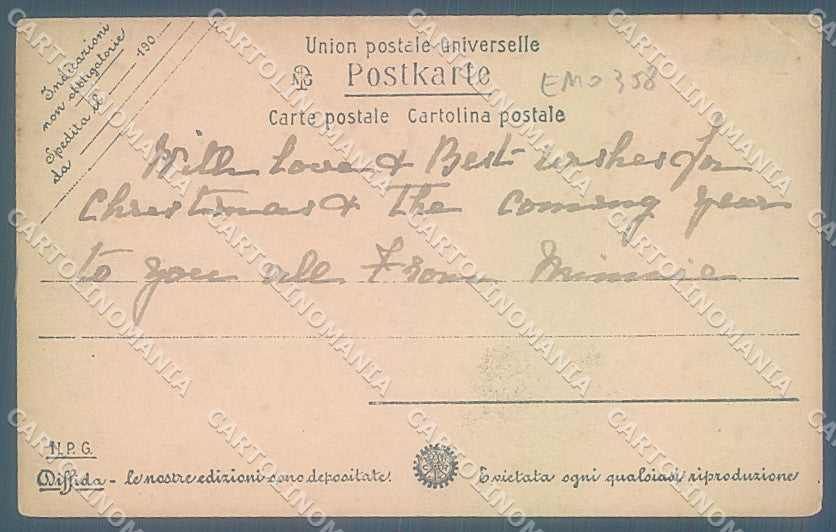 Indicazioni
non obbligatorie
Spedita il 190
da
Union postale universelle
Postkarte
EMO 358
Carte postale Cartolina postale
With love & Best wishes for
Christmas & The coming year
to you all From Minnie
N.P.G.
Diffida - le nostre edizioni sono depositate.
E vietata ogni qualsiasi riproduzione
CARTOLINOMANIA